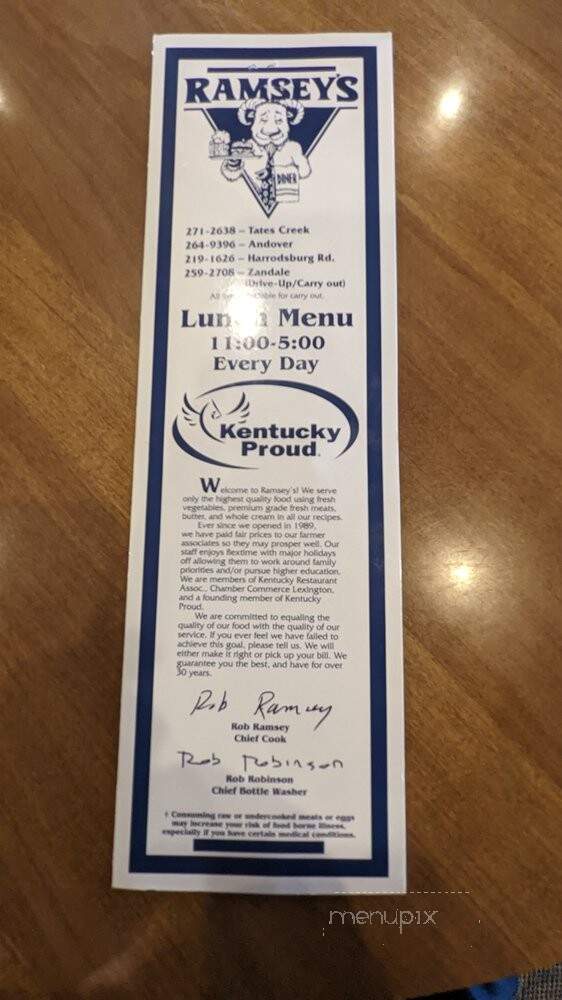 RAMSEY'S
DINER
271-2638 – Tates Creek
264-9396 – Andover
219-1626 – Harrodsburg Rd.
259-2708 – Zandale
(Drive-Up/Carry out)
All for carry out.
Lunch Menu
11:00-5:00
Every Day
Kentucky
Proud.
Welcome to Ramsey's! We serve
only the highest quality food using fresh
vegetables, premium grade fresh meats,
butter, and whole cream in all our recipes.
Ever since we opened in 1989,
we have paid fair prices to our farmer
associates so they may prosper well. Our
staff enjoys flextime with major holidays
off allowing them to work around family
priorities and/or pursue higher education.
We are members of Kentucky Restaurant
Assoc., Chamber Commerce Lexington,
and a founding member of Kentucky
Proud.
We are committed to equaling the
quality of our food with the quality of our
service. If you ever feel we have failed to
achieve this goal, please tell us. We will
either make it right or pick up your bill. We
guarantee you the best, and have for over
30 years.
Rob Ramsey
Rob Ramsey
Chief Cook
Rob Robinson
Rob Robinson
Chief Bottle Washer
† Consuming raw or undercooked meats or eggs
may increase your risk of food borne illness,
especially if you have certain medical conditions.
menupix